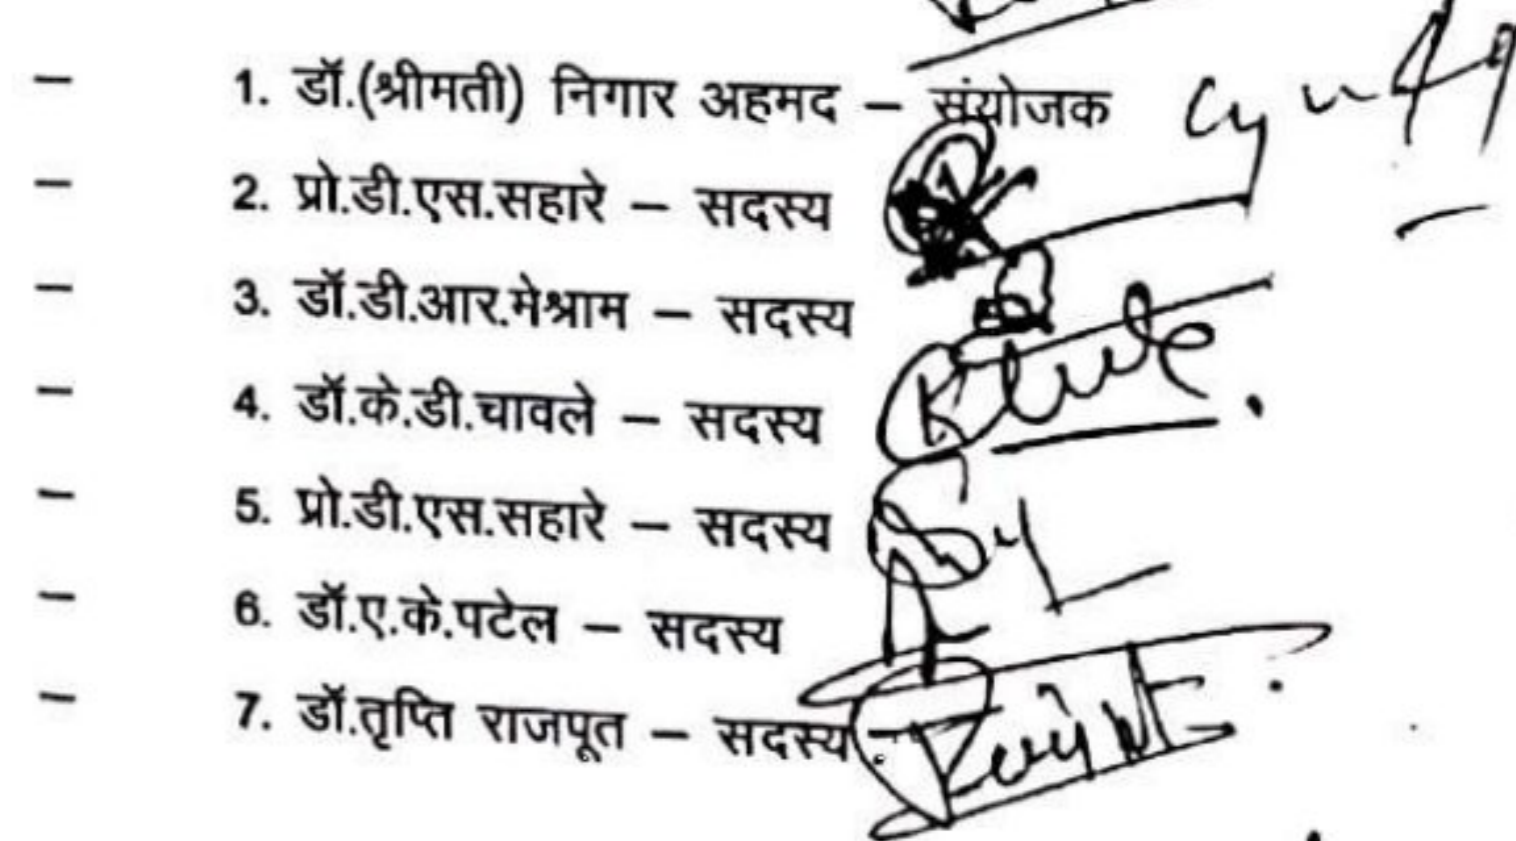 – 1. डॉ.(श्रीमती) निगार अहमद – संयोजक
– 2. प्रो.डी.एस.सहारे – सदस्य
– 3. डॉ.डी.आर.मेश्राम – सदस्य
– 4. डॉ.के.डी.चावले – सदस्य
– 5. प्रो.डी.एस.सहारे – सदस्य
– 6. डॉ.ए.के.पटेल – सदस्य
– 7. डॉ.तृप्ति राजपूत – सदस्य